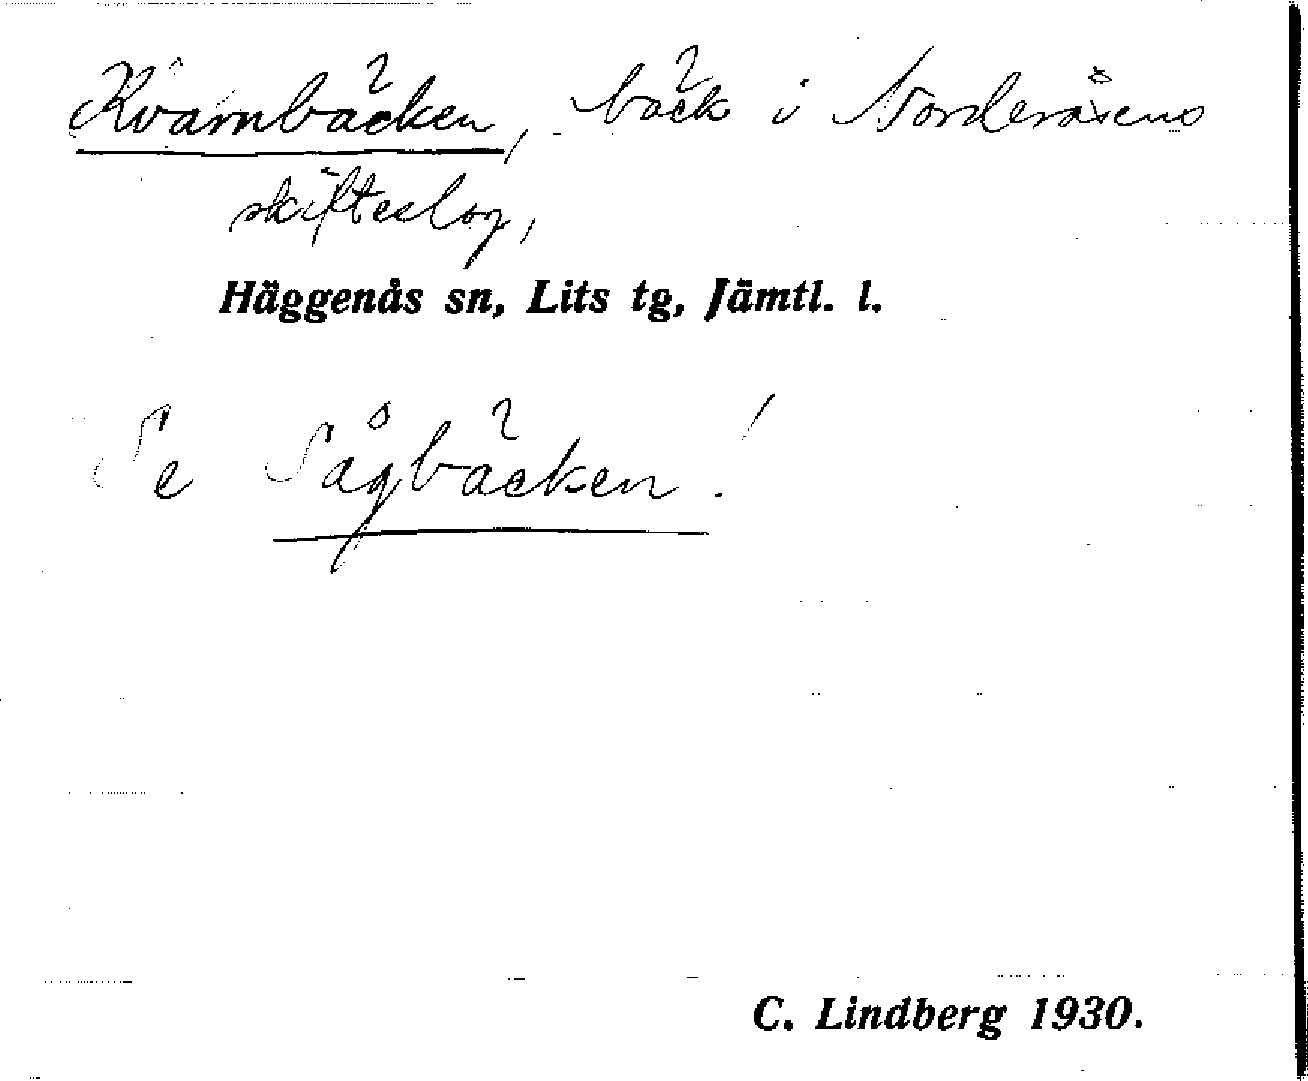 Kvarnbäcken, bäck i Norderåsens
skifteslag,
Häggenås sn, Lits tg, Jämtl. l.
Se Sågbäcken!
C. Lindberg 1930.